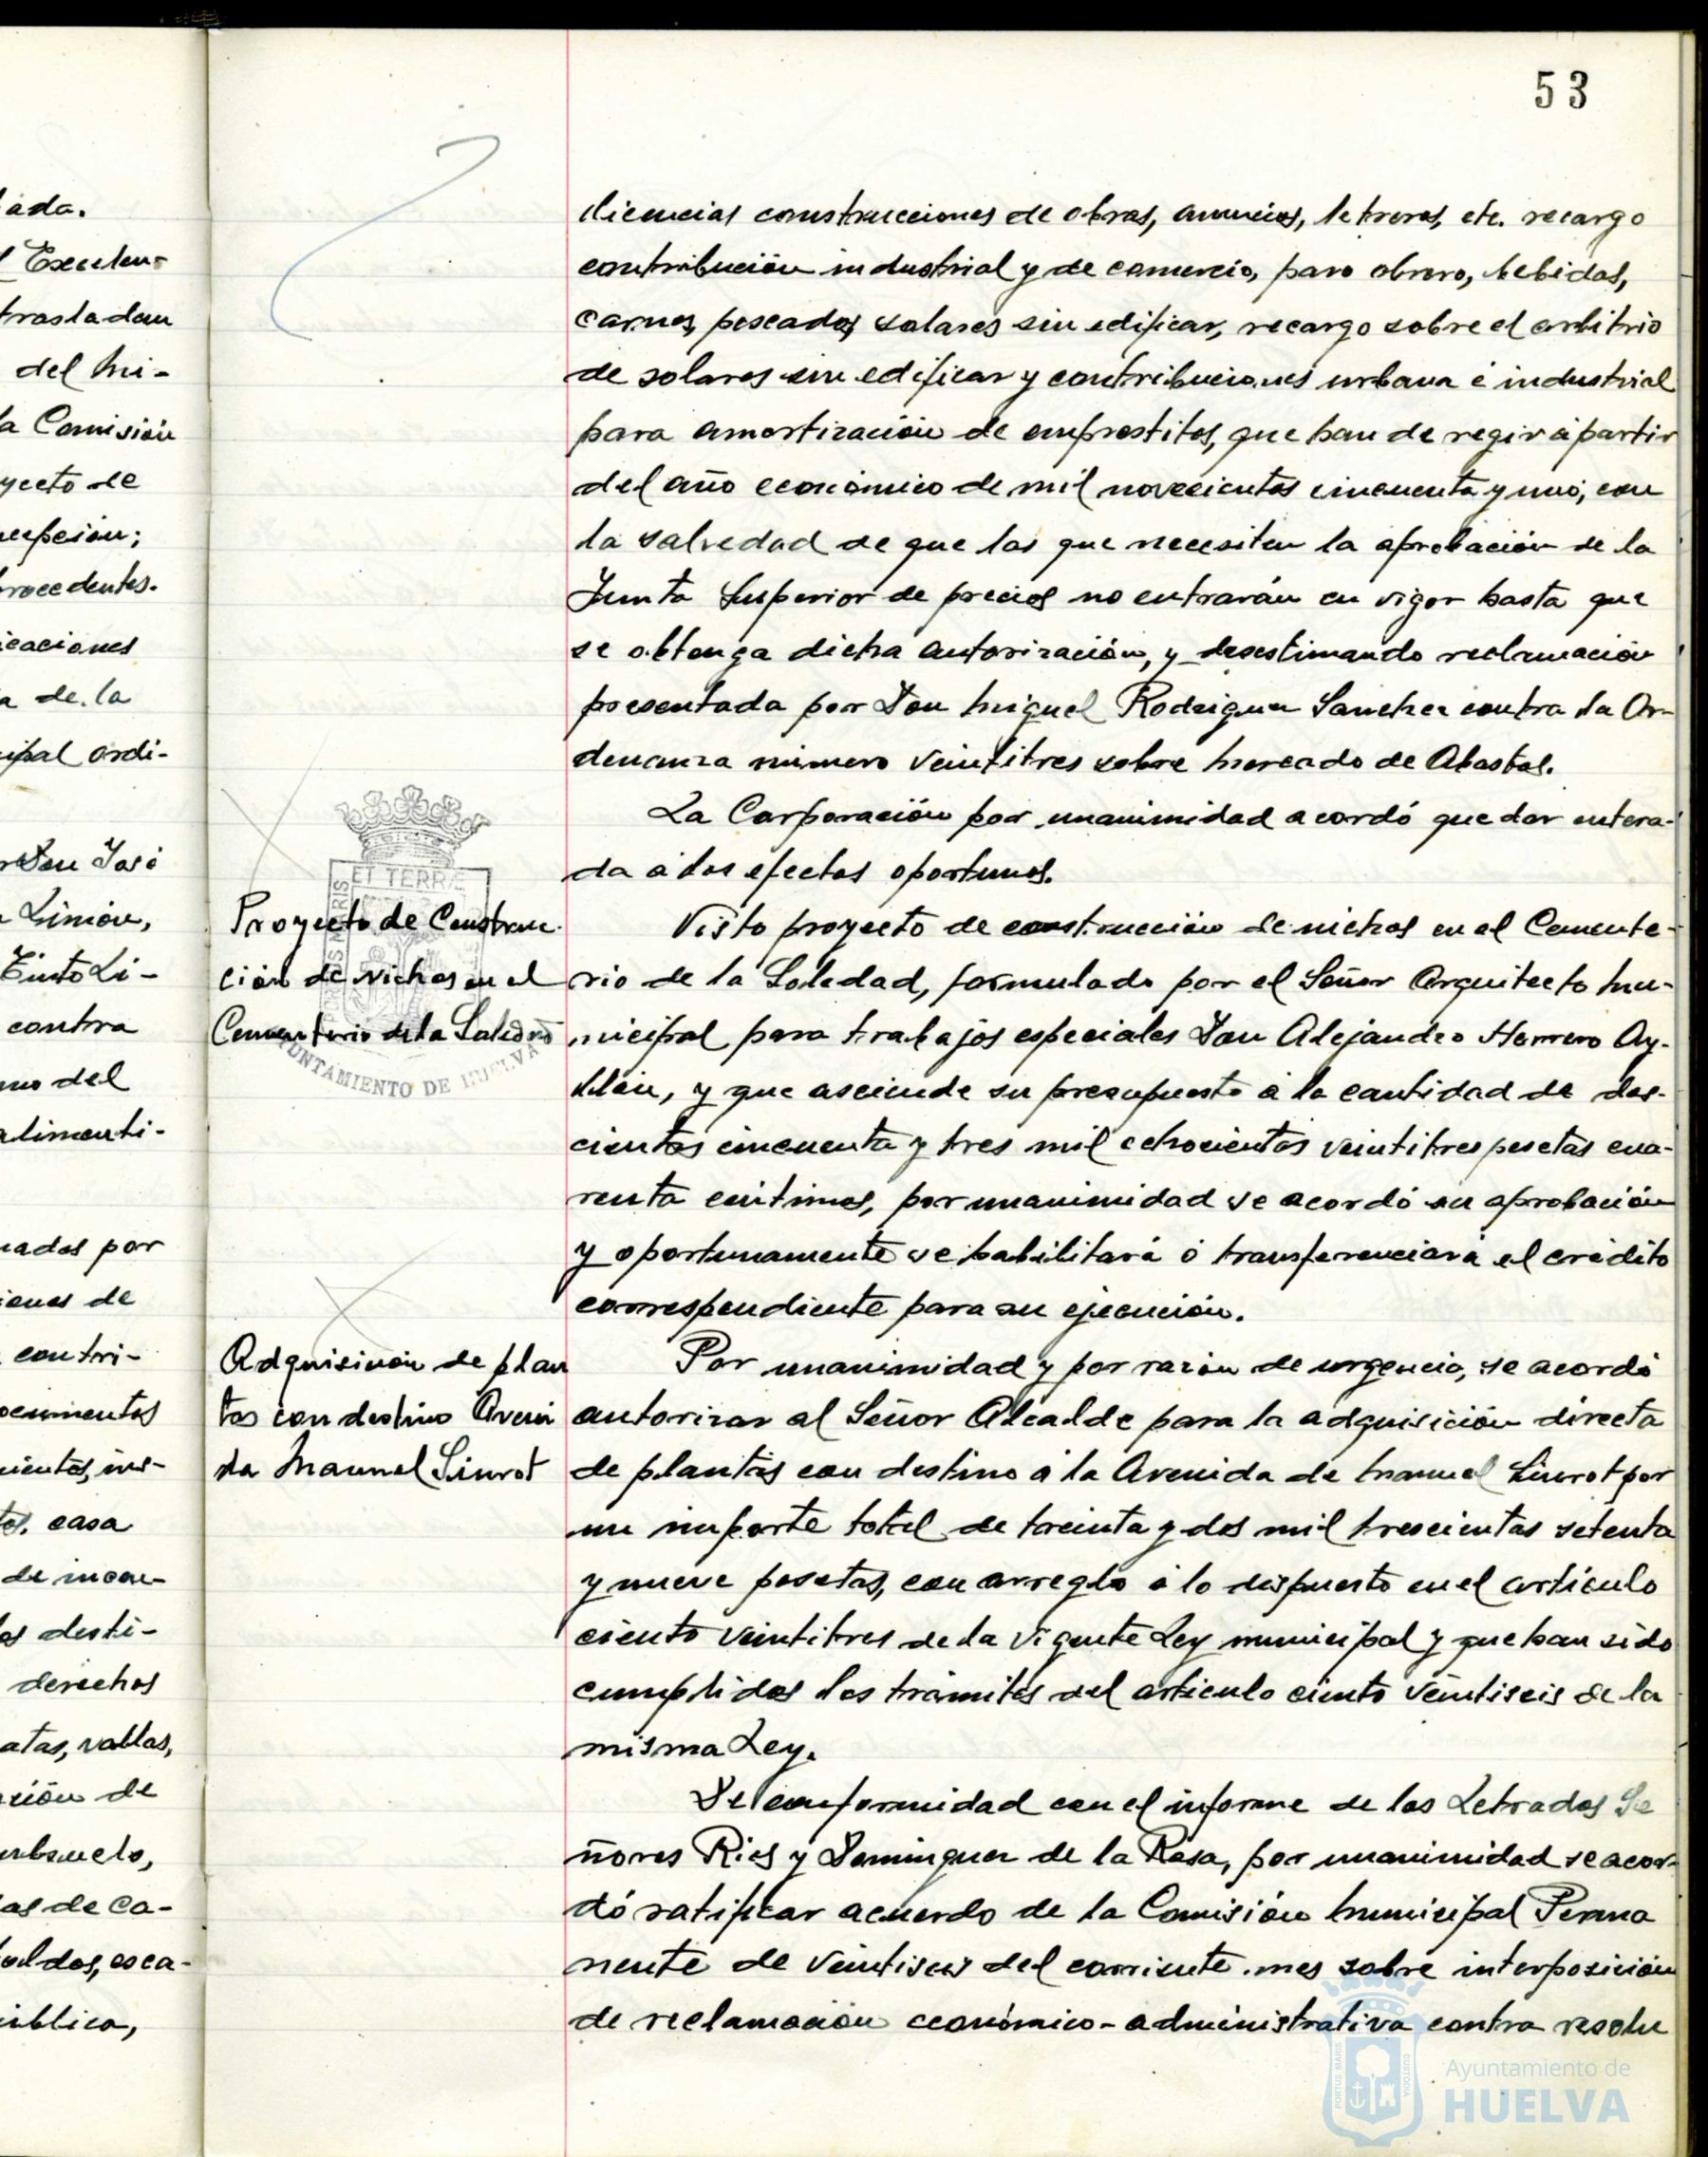 53
ada.
Excelen-
trasladan
del Mi-
a Comisión
yecto de
cepción;
rocedentes.
icaciones
a de la
ipal ordi-
Don José
Limón,
Tinto Li-
contra
mo del
alimenti-
nados por
iones de
contri-
ocumentos
cientos, ins-
casa
de incen-
os desti-
derechos
atas, vallas,
ción de
ubsuelo,
as de ca-
oldos, esca-
ública,
licencias construcciones de obras, anuncios, letreros, etc. recargo
contribución industrial y de comercio, paro obrero, bebidas,
carnes, pescados, solares sin edificar, recargo sobre el arbitrio
de solares sin edificar y contribuciones urbana é industrial
para amortización de empréstitos, que han de regir á partir
del año económico de mil novecientos cincuenta y uno, con
la salvedad de que las que necesiten la aprobación de la
Junta Superior de precios no entrarán en vigor hasta que
se obtenga dicha autorización, y desestimando reclamación
presentada por Don Miguel Rodriguez Sanchez contra la Or-
denanza número veintitres sobre Mercado de Abastos.
La Corporación por unanimidad acordó quedar entera-
da á los efectos oportunos.
Proyecto de Construc-
ción de nichos en el
Cementerio de la Soledad
ET TERRÆ
AYUNTAMIENTO DE HUELVA
Visto proyecto de construcción de nichos en el Cemente-
rio de la Soledad, formulado por el Señor Arquitecto Mu-
nicipal para trabajos especiales Don Alejandro Herrero Ay-
llón, y que asciende su presupuesto á la cantidad de dos-
cientas cincuenta y tres mil ochocientas veintitres pesetas cua-
renta céntimos, por unanimidad se acordó su aprobación
y oportunamente se habilitará ó transferenciará el crédito
correspondiente para su ejecución.
Adquisición de plan
tas con destino Aveni
da Manuel Siurot
Por unanimidad y por razón de urgencia, se acordó
autorizar al Señor Alcalde para la adquisición directa
de plantas con destino á la Avenida de Manuel Siurot por
un importe total de treinta y dos mil trescientas setenta
y nueve pesetas, con arreglo á lo dispuesto en el artículo
ciento veintitres de la vigente Ley municipal y que han sido
cumplidos los trámites del artículo ciento veintiseis de la
misma Ley.
De conformidad con el informe de los Letrados Se
ñores Rios y Dominguez de la Rosa, por unanimidad se acor-
dó ratificar acuerdo de la Comisión Municipal Perma
nente de veintiseis del corriente mes sobre interposición
de reclamación económico-administrativa contra resolu
Ayuntamiento de
HUELVA